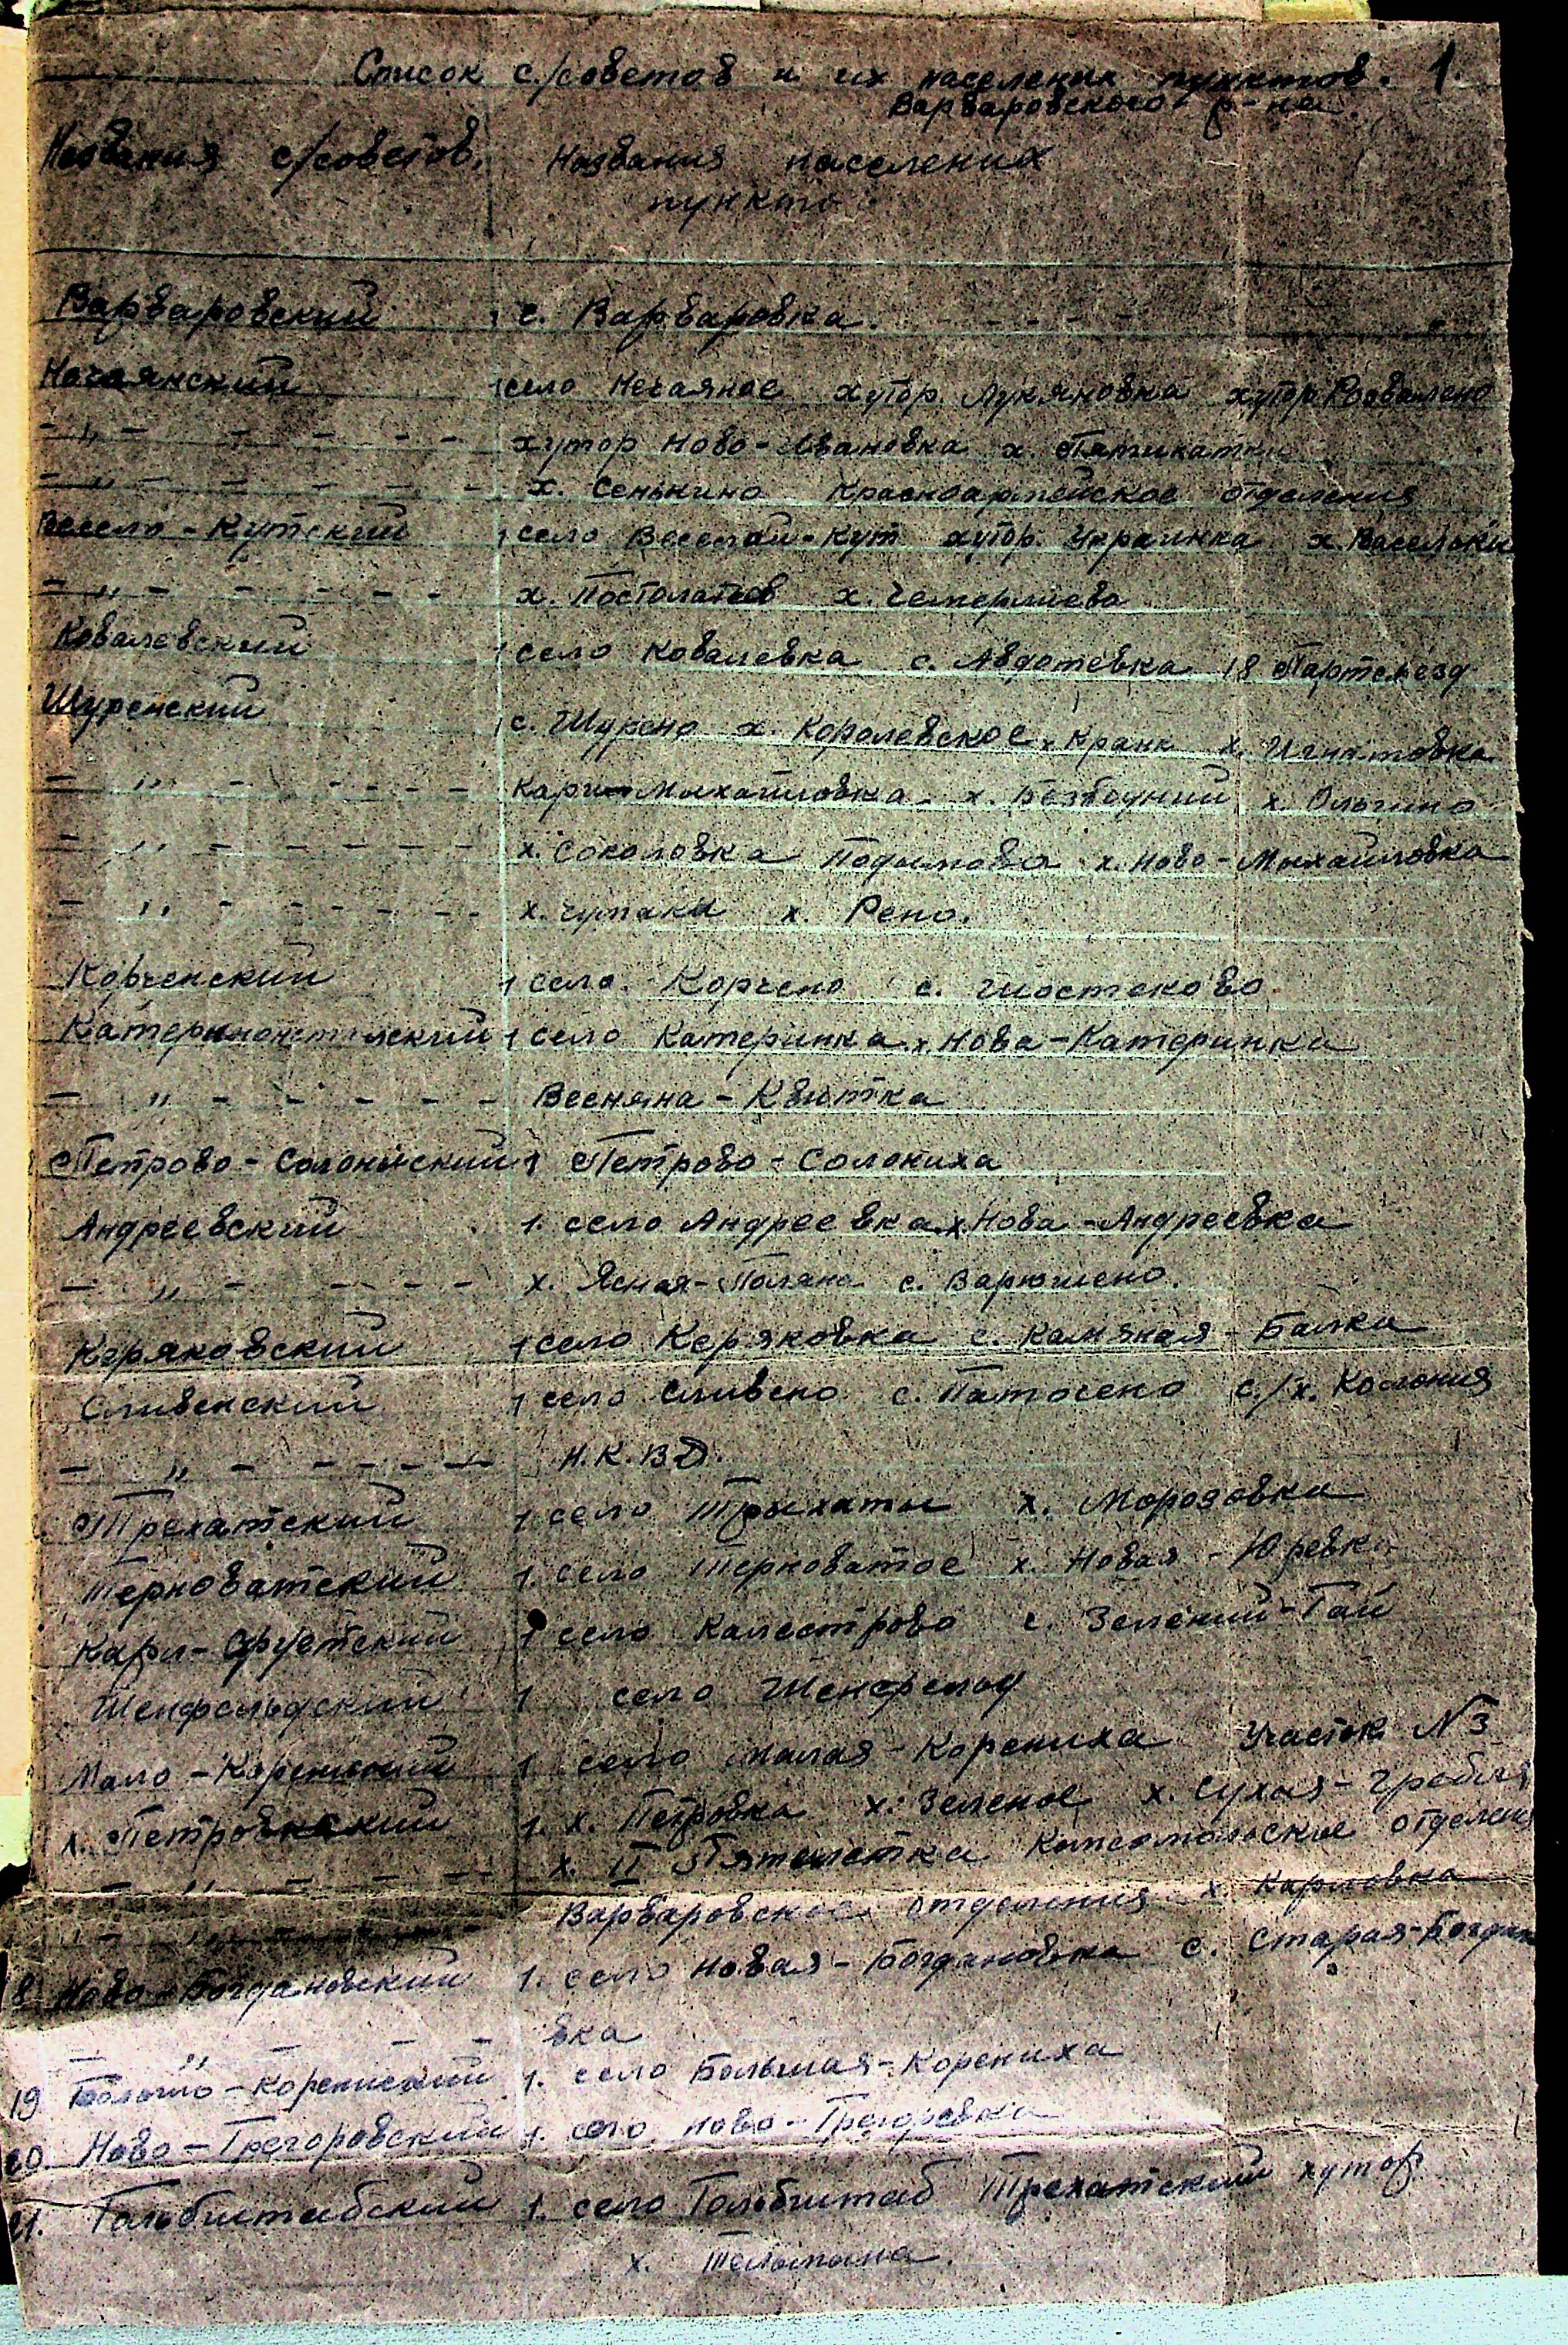 Список с./советов и их населених пунктов. 1.
Варваровского р-на.
Названия с/советов. Названия населених
пункто
Варваровский 1 с. Варваровка.
Нечаянский 1 село Нечаяное хутор. Лукяновка хутор
- " - - - - - хутор Ново-Ивановка х. Пятихатки
- " - - - - - х. Сенькино Красноармейское отделения
Весело-Кутский 1 село Веселый-Кут хутор. Украинка х. Васельки
- " - - - - - х. Постолатьев х. Чемерлиева
Ковалевский 1 село Ковалевка с. Авдотевка 18 Партсъезд
Шуренский 1 с. Шурено х. Королевское х. Кранк х. Игнатовка
- " - - - - - Михайловка х. х. Ольгино
- " - - - - - х. Соколовка Подимова х. Ново-Михайловка
- " - - - - - х. Чумаки х. Рено.
Корченский 1 село. Корчено с. Шостаково
1 село Катеринка х. Нова-Катеринка
- " - - - - - Весняна-Квитка
Петрово-Солоныский 1 Петрово-Солониха
Андреевский 1. село Андреевка х. Нова-Андреевка
- " - - - - - х. Ясная-Поляна с. Варюшено.
Керяковский 1 село Керяковка с. Камяная-Балка
Сливенский 1 село Сливено с. Патосено с./х. Колония
- " - - - - - Н.К.В.Д.
Трехатский 1 село Трыхаты х. Морозовка
Терноватский 1. село Терноватое х. Новая-Юревка
Карл- 1 село Калестрово с. Зеленый-Гай
Шенфельдский 1 село Шенфельд
Мало-Коренский 1 село Малая-Корениха Участок №3
х. Петровкский 1. х. Петровка х. Зеленое х. Сухая-Гребля
- " - - - - - х. II Пятилетка Комсомольское отделени
- " - Варваровское отделения х. Карловка
8 Ново-Богдановский 1. село Новая-Богдановка с. Старая-Богдан
- " - - - вка
19 Больше-Корениский 1. село Большая-Корениха
20. Ново-Грегоровский 1. село Ново-Грегоревка
21. Гольбштабский 1. село Гольбштаб Трехатский хутор.
х. Тельмана.